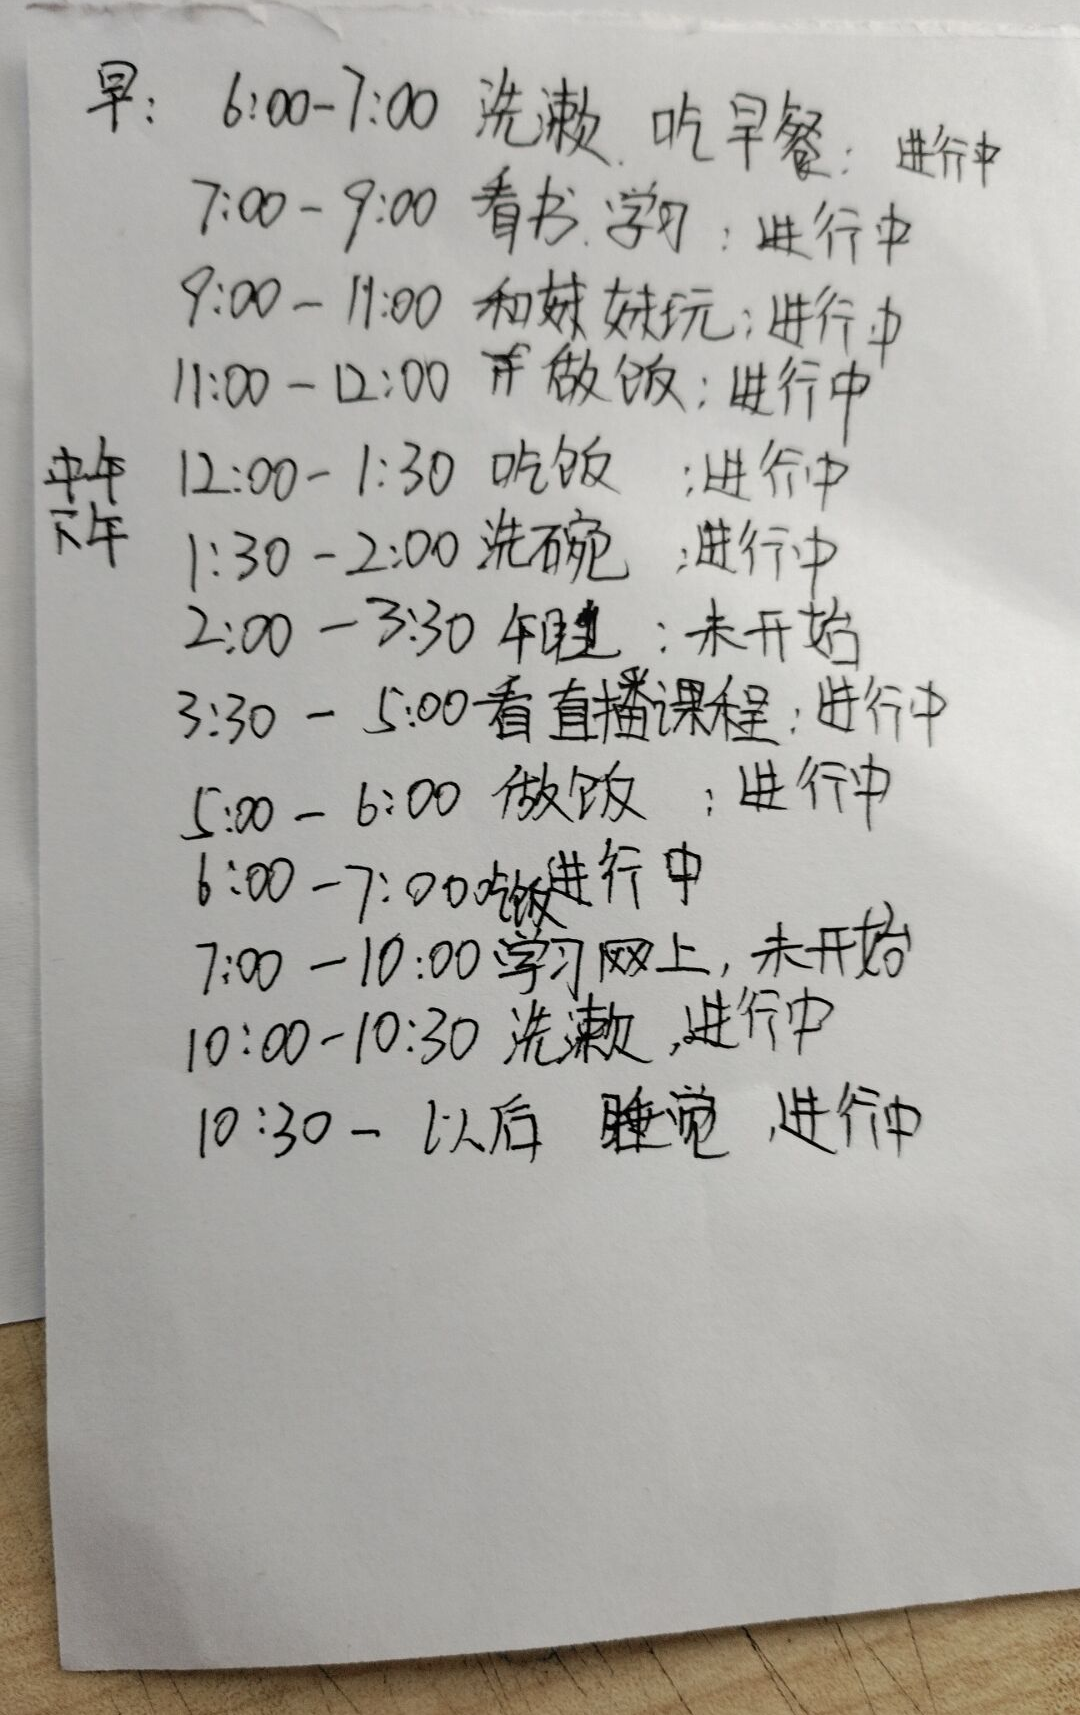 早: 6:00-7:00 洗漱、吃早餐: 进行中
7:00-9:00 看书、学习: 进行中
9:00-11:00 和妹妹玩: 进行中
11:00-12:00 做饭: 进行中
中午 12:00-1:30 吃饭 : 进行中
下午 1:30-2:00 洗碗 : 进行中
2:00-3:30 午睡 : 未开始
3:30-5:00 看直播课程: 进行中
5:00-6:00 做饭 : 进行中
6:00-7:00 吃饭进行中
7:00-10:00 学习网上, 未开始
10:00-10:30 洗漱, 进行中
10:30-以后 睡觉, 进行中